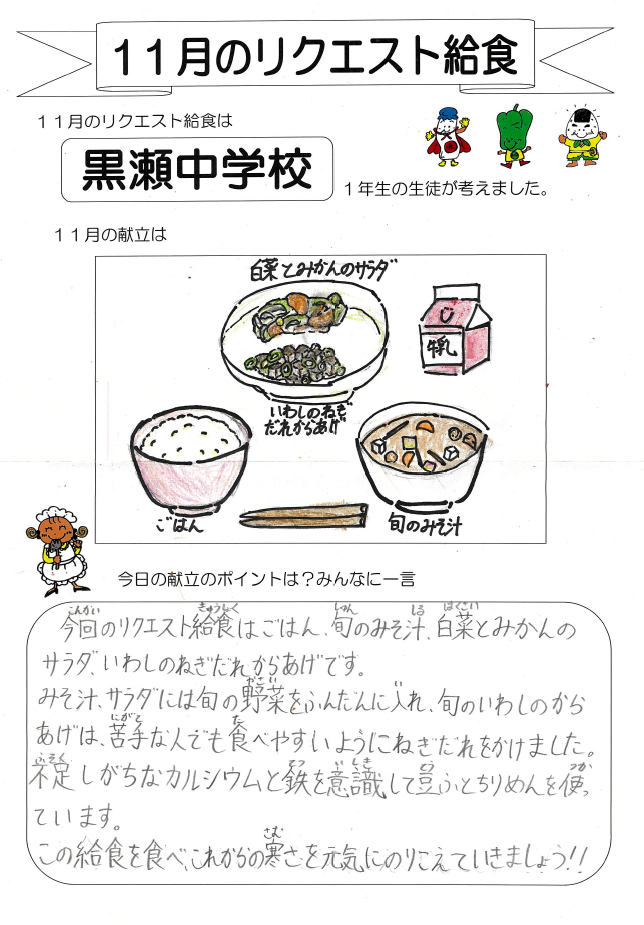 11月のリクエスト給食
11月のリクエスト給食は
黒瀬中学校
1年生の生徒が考えました。
11月の献立は
白菜とみかんのサラダ
牛乳
いわしのねぎ
だれからあげ
ごはん
旬のみそ汁
今日の献立のポイントは?みんなに一言
こんかい きゅうしょく しゅん しる はくさい
今回のリクエスト給食はごはん、旬のみそ汁、白菜とみかんの
サラダ、いわしのねぎだれからあげです。
やさい い
みそ汁、サラダには旬の野菜をふんだんに入れ、旬のいわしのから
にがて た
あげは、苦手な人でも食べやすいようにねぎだれをかけました。
ふそく てつ いしき とう つか
不足しがちなカルシウムと鉄を意識して豆ふとちりめんを使っ
ています。
さむ
この給食を食べ、これからの寒さを元気にのりこえていきましょう!!